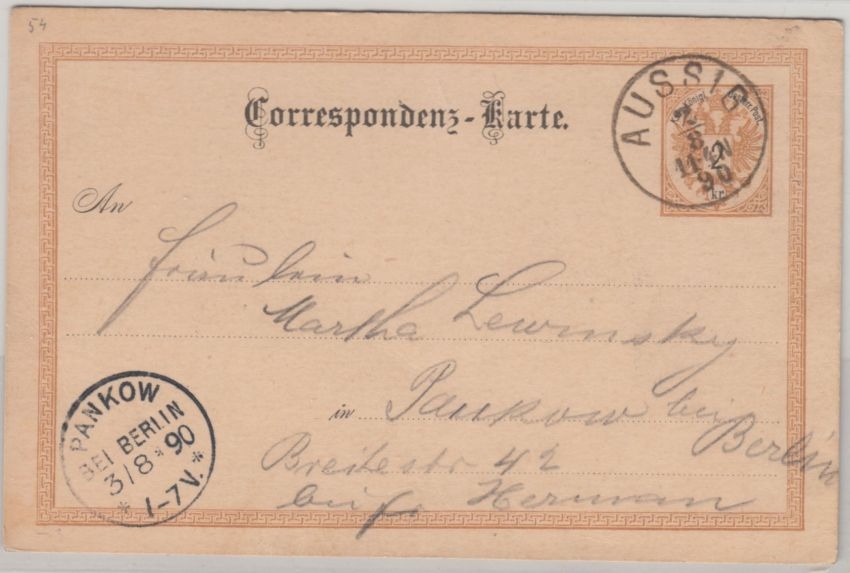 54
Correspondenz-Karte.
AUSSIG
2/8
90
2
kr.
An
Fräulein
Martha Lewinsky
in Pankow bei Berlin
Breitestr 42
bei Herman
PANKOW
BEI BERLIN
3/8 * 90
* 1-7V. *